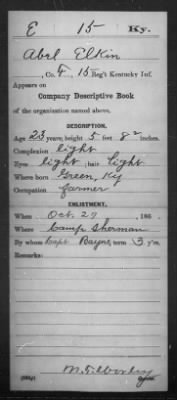 E 15 Ky.
Abel Elkin
, Co. F, 15 Reg't Kentucky Inf.
Appears on
Company Descriptive Book
of the organization named above.
DESCRIPTION.
Age 23 years; height 5 feet 8 2 inches.
Complexion light
Eyes light; hair light
Where born Green, Ky
Occupation farmer
ENLISTMENT.
When Oct. 27, 186 .
Where Camp Sherman
By whom Capt Bayne; term 3 y'rs.
Remarks:
Copyist.